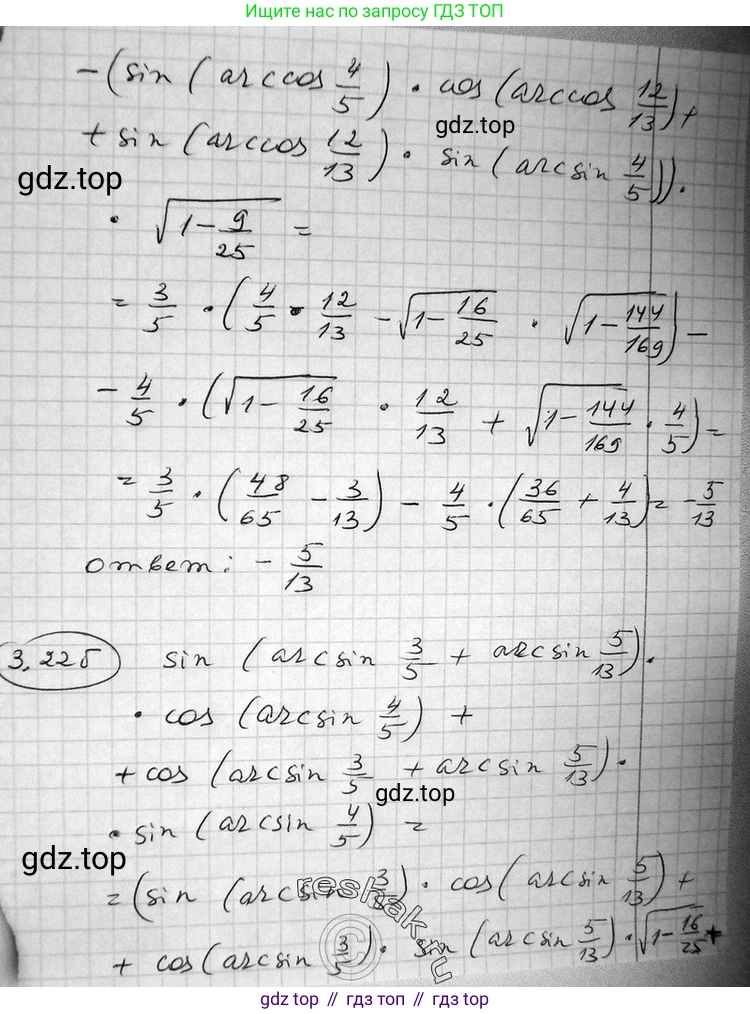 Ищите нас по запросу ГДЗ ТОП
- (sin (arccos 4/5) · cos (arccos 12/13) +
gdz.top
+ sin (arccos 12/13) · sin (arcsin 4/5)) ·
gdz.top
· √(1 - 9/25) =
= 3/5 · (4/5 · 12/13 - √(1 - 16/25) · √(1 - 144/169)) -
- 4/5 · (√(1 - 16/25) · 12/13 + √(1 - 144/169) · 4/5) =
= 3/5 · (48/65 - 3/13) - 4/5 · (36/65 + 4/13) = - 5/13
ответ: - 5/13
3.22б sin (arcsin 3/5 + arcsin 5/13) ·
· cos (arcsin 4/5) +
+ cos (arcsin 3/5 + arcsin 5/13) ·
gdz.top
· sin (arcsin 4/5) =
gdz.top
= (sin (arcsin 3/5) · cos (arcsin 5/13) +
reshak.ru
+ cos (arcsin 3/5) · sin (arcsin 5/13) · √(1 - 16/25) +
gdz.top // гдз топ // gdz.top